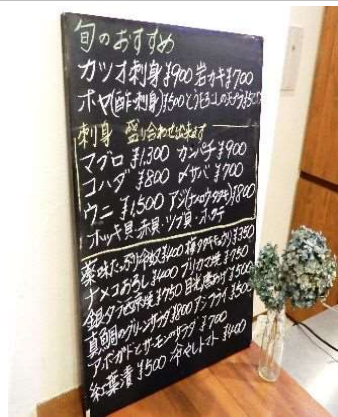 旬のおすすめ
カツオ刺身 ¥900 岩ガキ ¥700
ホヤ(酢・刺身) ¥500 とうもろこしの天プラ
刺身 盛り合わせ出来ます
マグロ ¥1,300 カンパチ ¥900
コハダ ¥800 〆サバ ¥700
ウニ ¥1,500 アジ(ナメロウ・タタキ) ¥800
ホッキ貝・赤貝・ツブ貝・ホタテ
薬味たっぷり冷奴 ¥400 梅タタキキュウリ ¥350
ナメコおろし ¥400 ブリカマ焼 ¥750
銀ダラ西京焼 ¥750 目光唐あげ ¥500
真鯛のグリーンサラダ ¥800 アジフライ ¥500
アボガドとサーモンのサラダ ¥700
紅葉漬 ¥500 冷やしトマト ¥400